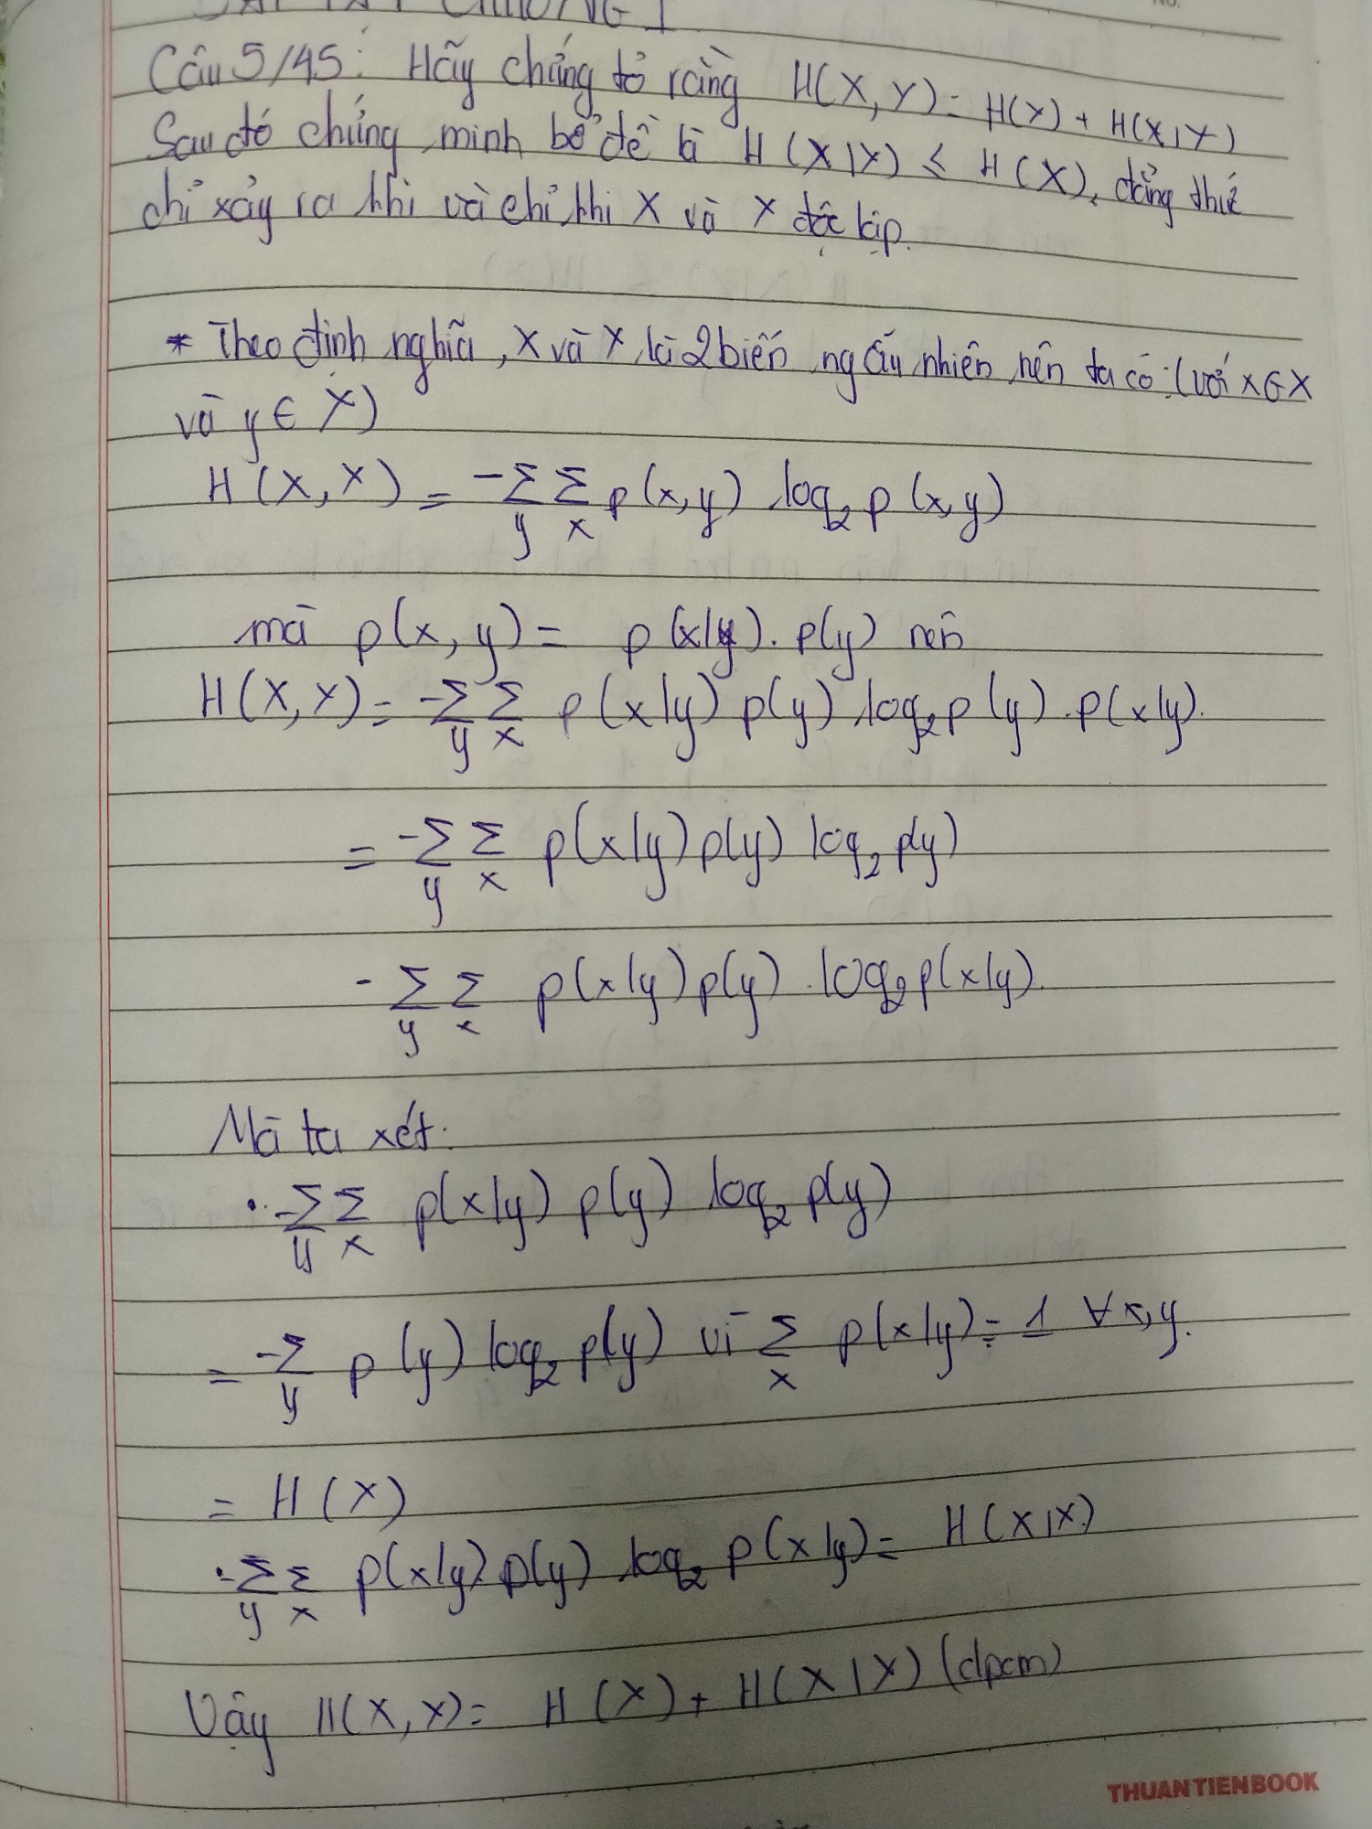 BÀI TẬP CHƯƠNG I
No.
Câu 5/45: Hãy chứng tỏ rằng H(X,Y) = H(Y) + H(X|Y)
Sau đó chứng minh bổ đề là H(X|Y) ≤ H(X), đẳng thức
chỉ xảy ra khi và chỉ khi X và Y độc lập.
* Theo định nghĩa, X và Y là 2 biến ngẫu nhiên nên ta có: (với x∈X
và y ∈ Y)
H(X,Y) = -∑y ∑x p(x,y) log₂ p(x,y)
mà p(x,y) = p(x|y). p(y) nên
H(X,Y) = -∑y ∑x p(x|y) p(y) log₂ p(y) . p(x|y).
= -∑y ∑x p(x|y) p(y) log₂ p(y)
- ∑y ∑x p(x|y) p(y) . log₂ p(x|y).
Mà ta xét:
• -∑y ∑x p(x|y) p(y) log₂ p(y)
= -∑y p(y) log₂ p(y) vì ∑x p(x|y) = 1 ∀ x,y.
= H(Y)
• -∑y ∑x p(x|y) p(y) log₂ p(x|y) = H(X|Y)
Vậy H(X,Y) = H(Y) + H(X|Y) (đpcm)
THUANTIENBOOK